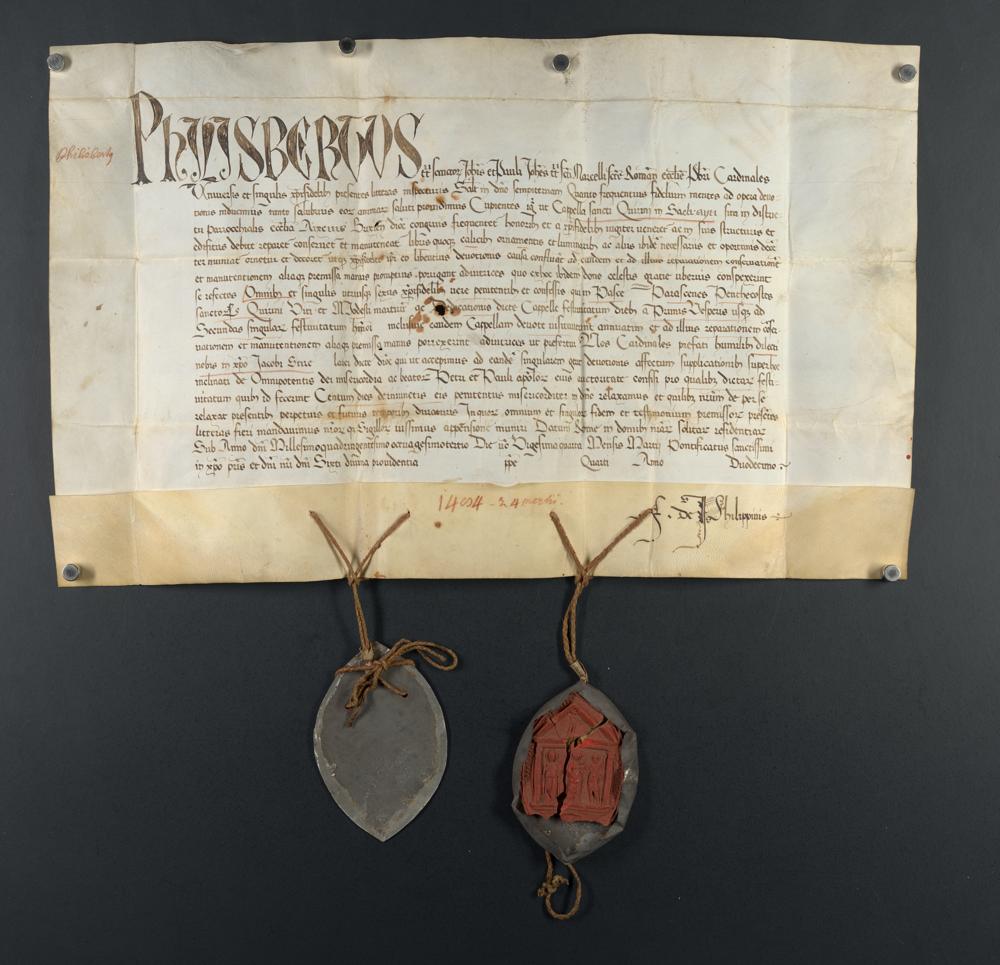 Philiberty
PhILISBERTUS
tt̄ sanctor̄ Joh̄is et Pauli Joh̄es tt̄ sc̄i Marcelli sc̄te Roman̄ eccl̄ie pb̄ri Cardinales
Vniuersis et singulis xp̄ifidelib; presentes litteras inspecturis Salt̄ in dn̄o sempiternam Quanto frequentius fidelium mentes ad opera deuo-
tionis inducimus tanto salubrius eor̄ animar̄ saluti prouidemus Cupientes igr̄ ut Capella sancti Quirini in sita in districtu
Parrocchialis eccl̄ia dioc̄ congruis frequentet̄ honorib; et a xp̄ifidelib; iugiter veneret̄ ac in suis structuris et
edificijs debite reparet̄ conseruet̄ et manuteneat̄ libris quoq; calicib; ornamentis et luminarib; ac alijs ibidē necessarijs et oportunis decē
ter muniat̄ ornetur et decoret̄ utq; xp̄ifideles ip̄i eo libentius deuotionis causa confluāt ad eandem et ad illius reparationem conseruationē
et manutentionem aliaq; premissa manus promptius porrigant adiutrices quo exhoc ibidem dono celestis gratie uberius conspexerint
se refectos Omnib; et singulis utriusq; sexus xp̄ifidelib; uere penitentib; et confessis qui in Pasce Parascenes Penthecostes
sanctor̄ Quirini Viti et Modesti martirū ac Dedicationis dicte Capelle festiuitatum dieb; a Primis Vesperis usq; ad
Secundas singular̄ festiuitatum hm̄oi inclusiue eandem Cappellam deuote uisitauerint annuatim et ad illius reparationem cōser-
uationem et manutentionem aliaq; premissa manus porrexerint adiutrices ut prefertur Nos Cardinales prefati humilib; dilecti
nobis in xp̄o Jacobi laici dicte dioc̄ qui ut accepimus ad eandē singularem gerit deuotionis affectum supplicationib; super hoc
inclinati de Omnipotentis dei misericordia ac beator̄ Petri et Pauli ap̄lor̄ eius auctoritate confisi pro qualib; dictar̄ festi-
uitatum quib; id fecerint Centum dies de iniunctis eis penitentijs misericorditer in dn̄o relaxamus et quilib; nr̄um de per se
relaxat presentib; perpetuis et futuris temporib; duraturis Inquor̄ omnium et singlor̄ fidem et testimonium premissor̄ presētes
litteras fieri mandauimus nr̄or̄ q; Sigillor̄ iussimus appensione muniri Datum Rome in domib; nr̄ar̄ solitar̄ residentiar̄
Sub Anno dn̄i Millesimoquadringentesimo octuagesimotertio Die uō Vigesimo quarto Mensis Martij Pontificatus sanctissimi
in xp̄o pr̄is et dn̄i nr̄i dn̄i Sixti diuina prouidentia pp̄e Quarti Anno Duodecimo
24 martii
Philippinis